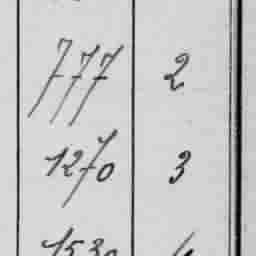 777 2
1270 3
1530